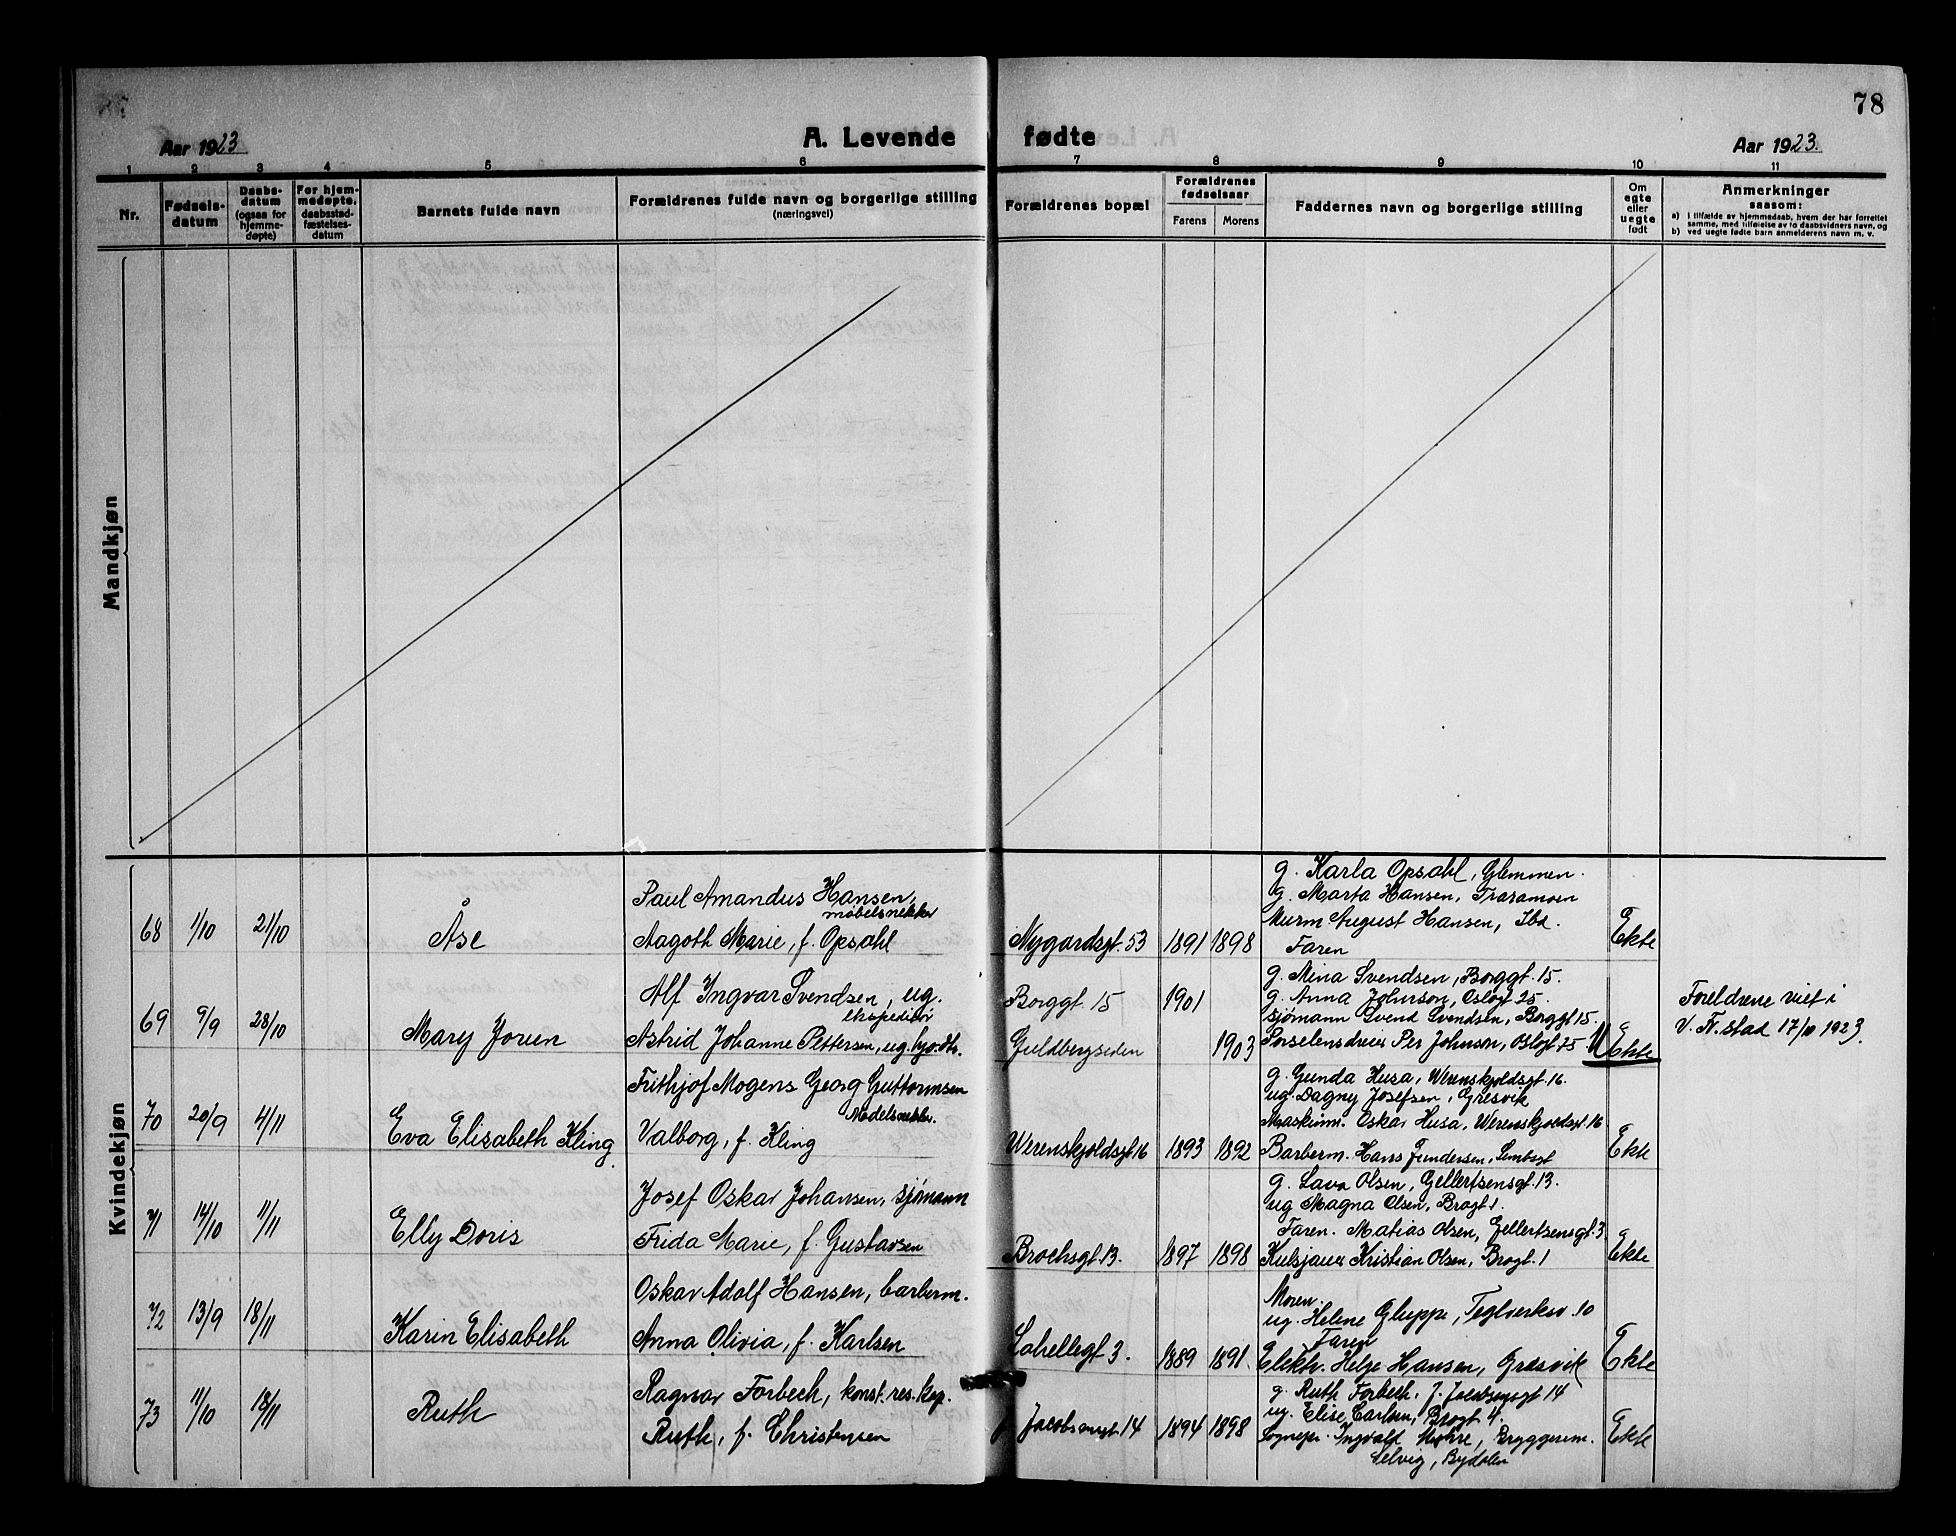 78
Aar 1923
A. Levende fødte
Aar 1923.
1 2 3 4 5 6 7 8 9 10 11
Nr.
Fødsels-
datum
Daabs-
datum
(ogsaa for
hjemme-
døpte)
For hjem-
medøpte,
daabsstad-
fæstelses-
datum
Barnets fulde navn
Forældrenes fulde navn og borgerlige stilling
(næringsvei)
Forældrenes bopæl
Forældrenes
fødselsaar
Farens Morens
Faddernes navn og borgerlige stilling
Om
egte
eller
uegte
født
Anmerkninger
saasom:
a) i tilfælde av hjemmedaab, hvem der har forrettet
samme, med tilføielse av to daabsvidners navn, og
b) ved uegte fødte barn anmelderens navn m. v.
Mandkjøn
Kvindekjøn
68 1/10 21/10 Åse
Paul Amandus Hansen,
møbelsnekker
Aagoth Marie, f. Opsahl
Nygardsgt. 53 1891 1898
g. Karla Opsahl, Glemmen.
g. Marta Hansen, Traramoen
Murm August Hansen, Ibd.
Faren
Ekte
69 9/9 28/10 Mary Jorun
Alf Ingvar Svendsen, ug.
ekspeditør
Astrid Johanne Pettersen, ug. hjo. dtr.
Borggt 15 1901
Guldbergsiden 1903
g. Mina Svendsen, Borggt. 15.
g. Anna Johnson, Oslogt 25.
sjømann Svend Svendsen, Borggt 15.
Porselensdreier Per Johnson, Oslogt 25.
UEkte
Foreldrene viet i
V. Fr.stad 17/11 1923.
70 20/9 4/11 Eva Elisabeth Kling
Frithjof Mogens Georg Guttormsen
Modelsnekker.
Valborg, f. Kling
Werenskjoldsgt 16 1893 1892
g. Gunda Husa, Werenskjoldsgt 16.
ug. Dagny Josefsen, Gresvik
Maskinm. Oskar Husa, Werenskjoldsgt. 16
Barberm. Hans Gundersen, Lembsgt
Ekte
71 14/10 11/11 Elly Doris
Josef Oskar Johansen, sjømann
Frida Marie, f. Gustavsen
Brochsgt 13. 1897 1898
g. Lava Olsen, Gellertsensgt. 13.
ug Magna Olsen, Brogt 1.
Faren. Matias Olsen, Gellertsensgt. 3
Kulsjauer Kristian Olsen, Brogt. 1
Ekte
72 13/9 18/11 Karin Elisabeth
Oskar Adolf Hansen, barberm.
Anna Olivia, f. Karlsen
1889 1891.
Moren.
ug. Helene Gluppe, Teglverksv. 10
Faren
Elektr. Helge Hansen, Gresvik
Ekte
73 11/10 18/11 Ruth
Ragnar Forbech, konst. res. kap.
Ruth, f. Christensen
14 1894 1898
g. Ruth Forbech, J. 14
ug. Elise Carlsen, Brogt 4.
Sognepr. Ingvald Mohre, Bryggerim.
Selvig, Bydalen
Ekte